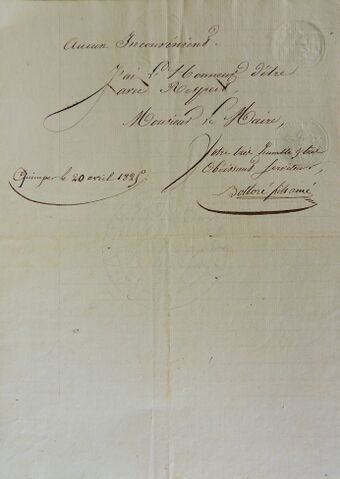 Aucun Inconvéniend.
J'ai L'Honneur d'être
avec Respect,
Monsieur Le Maire,
Votre très humble & très
Obeissand Serviteur,
Bolloré fils ainé
Quimper le 20 avril 182